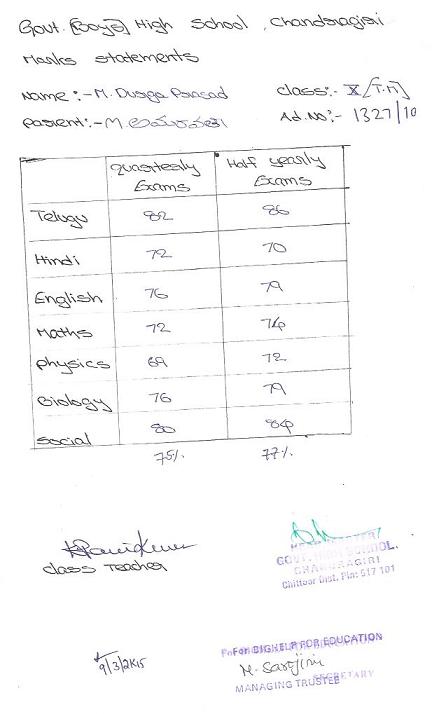 Govt. [Boys] High School, Chandragiri
Marks statements
Name :- M. Durga Prasad class:- X [T.M]
parent:- M. Ad.No:- 1327/10
Quarterly Exams Half yearly Exams
Telugu 82 86
Hindi 72 70
English 76 79
Maths 72 74
physics 69 72
Biology 76 79
social 80 84
75% 77%
class Teacher
GOVT. HIGH SCHOOL,
CHANDRAGIRI
Chittoor Dist. Pin: 517 101
9/3/2K15
For BIGHELP FOR EDUCATION
M. Sarojini
MANAGING TRUSTEE
SECRETARY